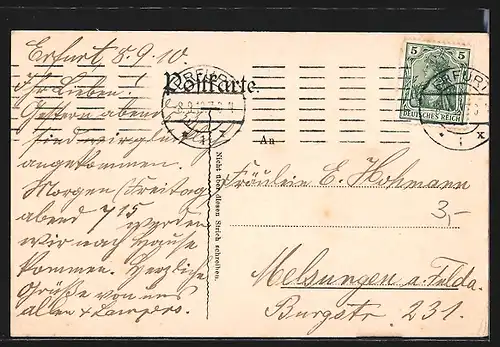 Erfurt, 8.9.10.
Ihr Lieben!
Gestern abend
sind wir glückl.
angekommen.
Morgen (Freitag)
abend 7 15 werden
wir nach Hause
kommen. Herzliche
Grüße von uns
allen + Lampers.
Postkarte.
ERFURT
8.9.10.
* 1 x
5 5
DEUTSCHES REICH
ERFURT
* 1 x
An
Nicht über diesen Strich schreiben.
Fräulein E. Hohmann
3,-
Melsungen a. Fulda.
Burgstr. 231.